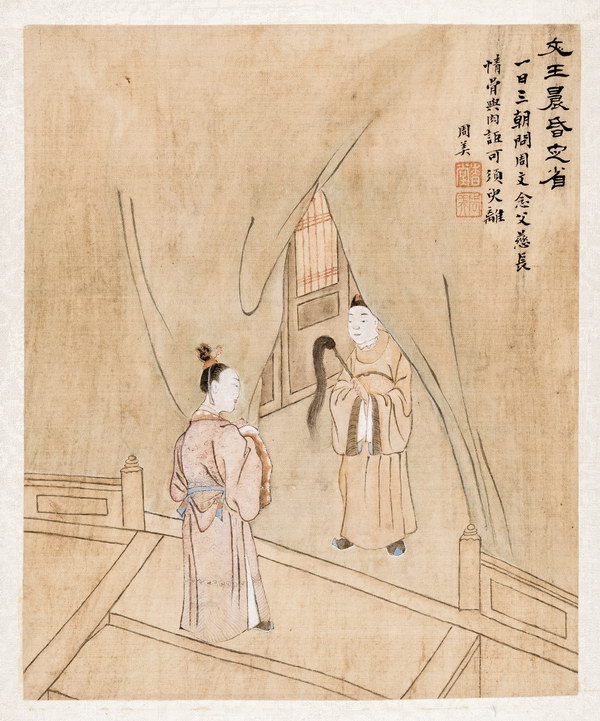 文王晨昏定省
一日三朝問周文念父慈長
情骨與肉詎可須臾離
周美